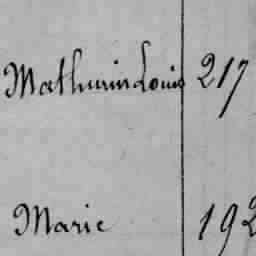 Mathurin Louis 217
Marie 192